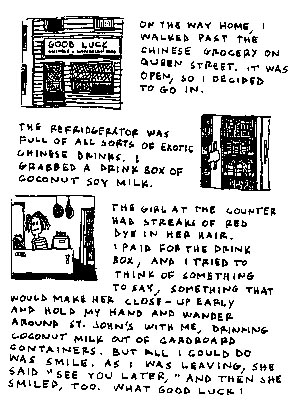 ON THE WAY HOME, I
WALKED PAST THE
CHINESE GROCERY ON
QUEEN STREET. IT WAS
OPEN, SO I DECIDED
TO GO IN.
GOOD LUCK
THE REFRIDGERATOR WAS
FULL OF ALL SORTS OF EXOTIC
CHINESE DRINKS. I
GRABBED A DRINK BOX OF
COCONUT SOY MILK.
THE GIRL AT THE COUNTER
HAD STREAKS OF RED
DYE IN HER HAIR.
I PAID FOR THE DRINK
BOX, AND I TRIED TO
THINK OF SOMETHING
TO SAY, SOMETHING THAT
WOULD MAKE HER CLOSE-UP EARLY
AND HOLD MY HAND AND WANDER
AROUND ST. JOHN'S WITH ME, DRINKING
COCONUT MILK OUT OF CARDBOARD
CONTAINERS. BUT ALL I COULD DO
WAS SMILE. AS I WAS LEAVING, SHE
SAID "SEE YOU LATER," AND THEN SHE
SMILED, TOO. WHAT GOOD LUCK!